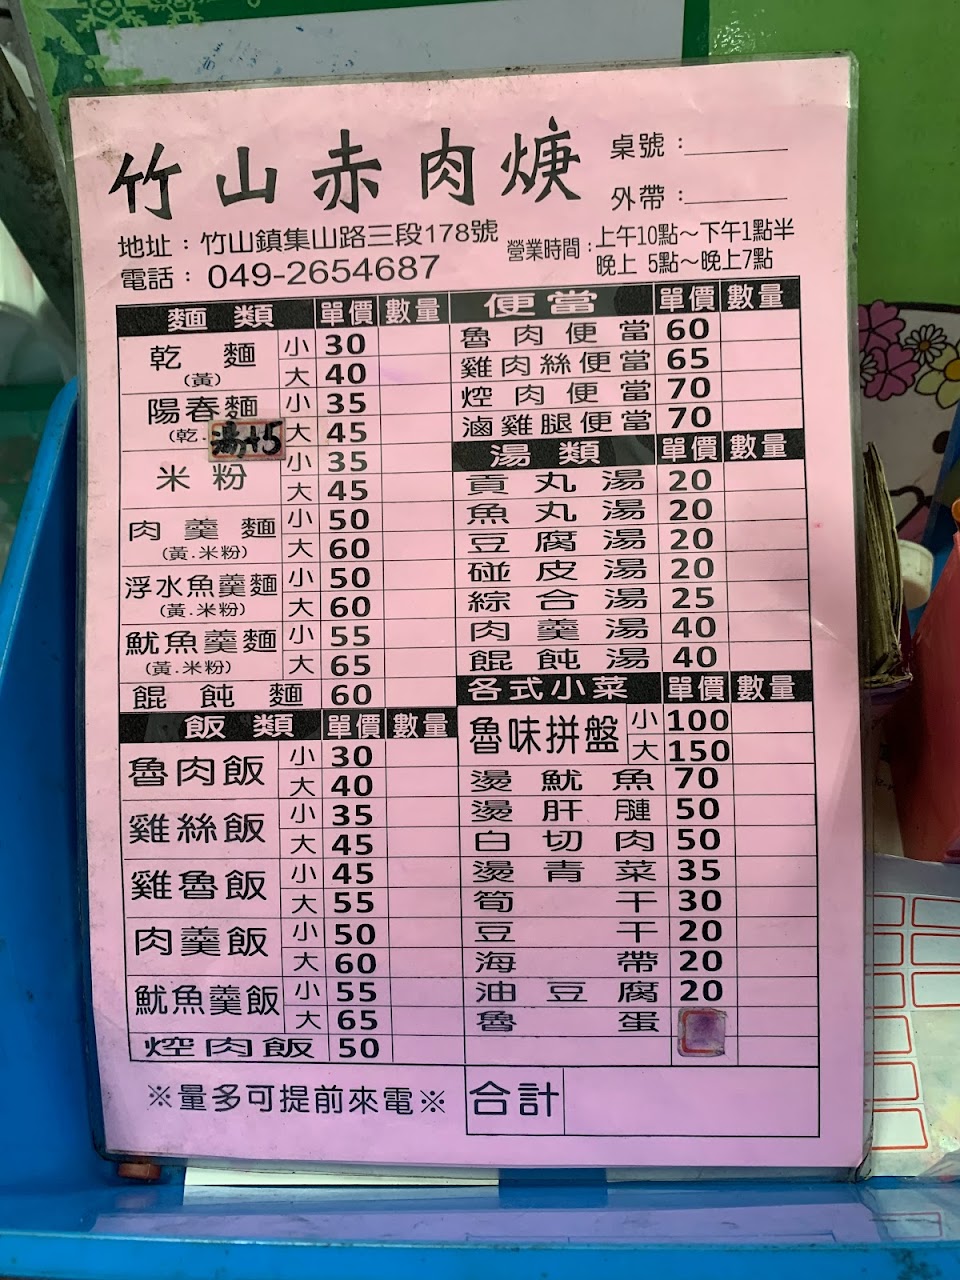 竹山赤肉焿
桌號：
外帶：
地址：竹山鎮集山路三段178號
電話：049-2654687
營業時間：上午10點～下午1點半
晚上 5點～晚上7點
麵類 單價 數量
乾麵 小 30
(黃) 大 40
陽春麵 小 35
(乾. 湯+5 大 45
米粉 小 35
大 45
肉羹麵 小 50
(黃.米粉) 大 60
浮水魚羹麵 小 50
(黃.米粉) 大 60
魷魚羹麵 小 55
(黃.米粉) 大 65
餛飩麵 60
飯類 單價 數量
魯肉飯 小 30
大 40
雞絲飯 小 35
大 45
雞魯飯 小 45
大 55
肉羹飯 小 50
大 60
魷魚羹飯 小 55
大 65
焢肉飯 50
便當 單價 數量
魯肉便當 60
雞肉絲便當 65
焢肉便當 70
滷雞腿便當 70
湯類 單價 數量
貢丸湯 20
魚丸湯 20
豆腐湯 20
碰皮湯 20
綜合湯 25
肉羹湯 40
餛飩湯 40
各式小菜 單價 數量
魯味拼盤 小 100
大 150
燙魷魚 70
燙肝腱 50
白切肉 50
燙青菜 35
筍干 30
豆干 20
海帶 20
油豆腐 20
魯蛋
※量多可提前來電※
合計